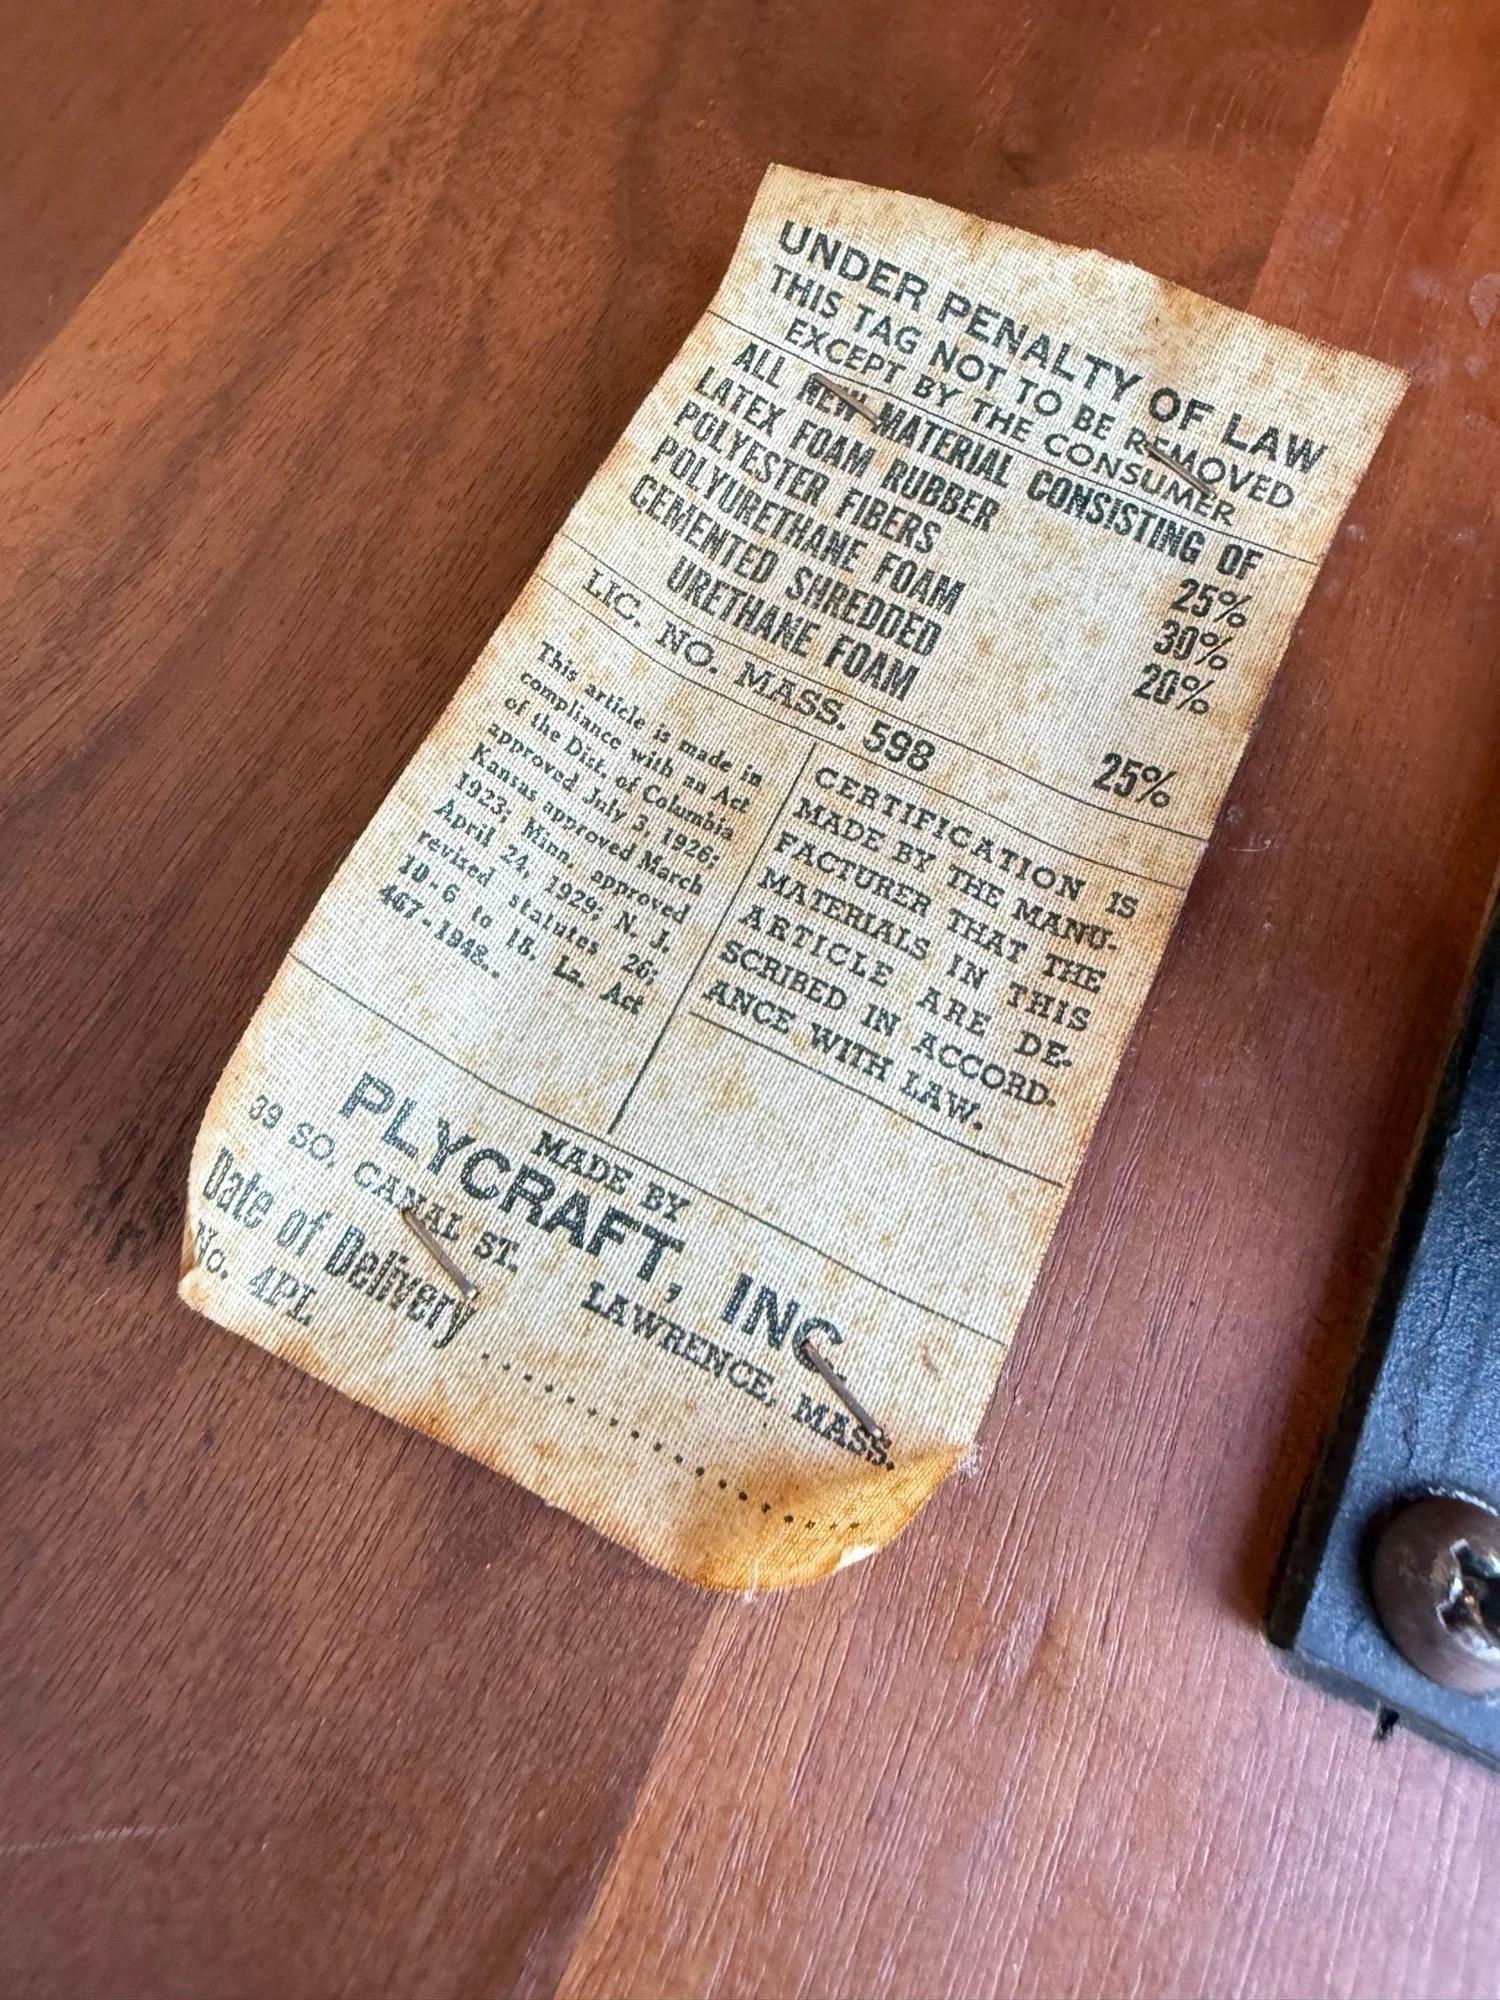 UNDER PENALTY OF LAW
THIS TAG NOT TO BE REMOVED
EXCEPT BY THE CONSUMER
ALL NEW MATERIAL CONSISTING OF
LATEX FOAM RUBBER 25%
POLYESTER FIBERS 30%
POLYURETHANE FOAM 20%
CEMENTED SHREDDED
URETHANE FOAM 25%
LIC. NO. MASS. 598
This article is made in
compliance with an Act
of the Dist. of Columbia
approved July 3, 1926;
Kansas approved March
1923; Minn. approved
April 24, 1929; N. J.
revised statutes 26;
10-6 to 18. La. Act
467-1948..
CERTIFICATION IS
MADE BY THE MANU-
FACTURER THAT THE
MATERIALS IN THIS
ARTICLE ARE DE-
SCRIBED IN ACCORD-
ANCE WITH LAW.
MADE BY
PLYCRAFT, INC.
39 SO. CANAL ST. LAWRENCE, MASS.
Date of Delivery ....................
No. 4PL